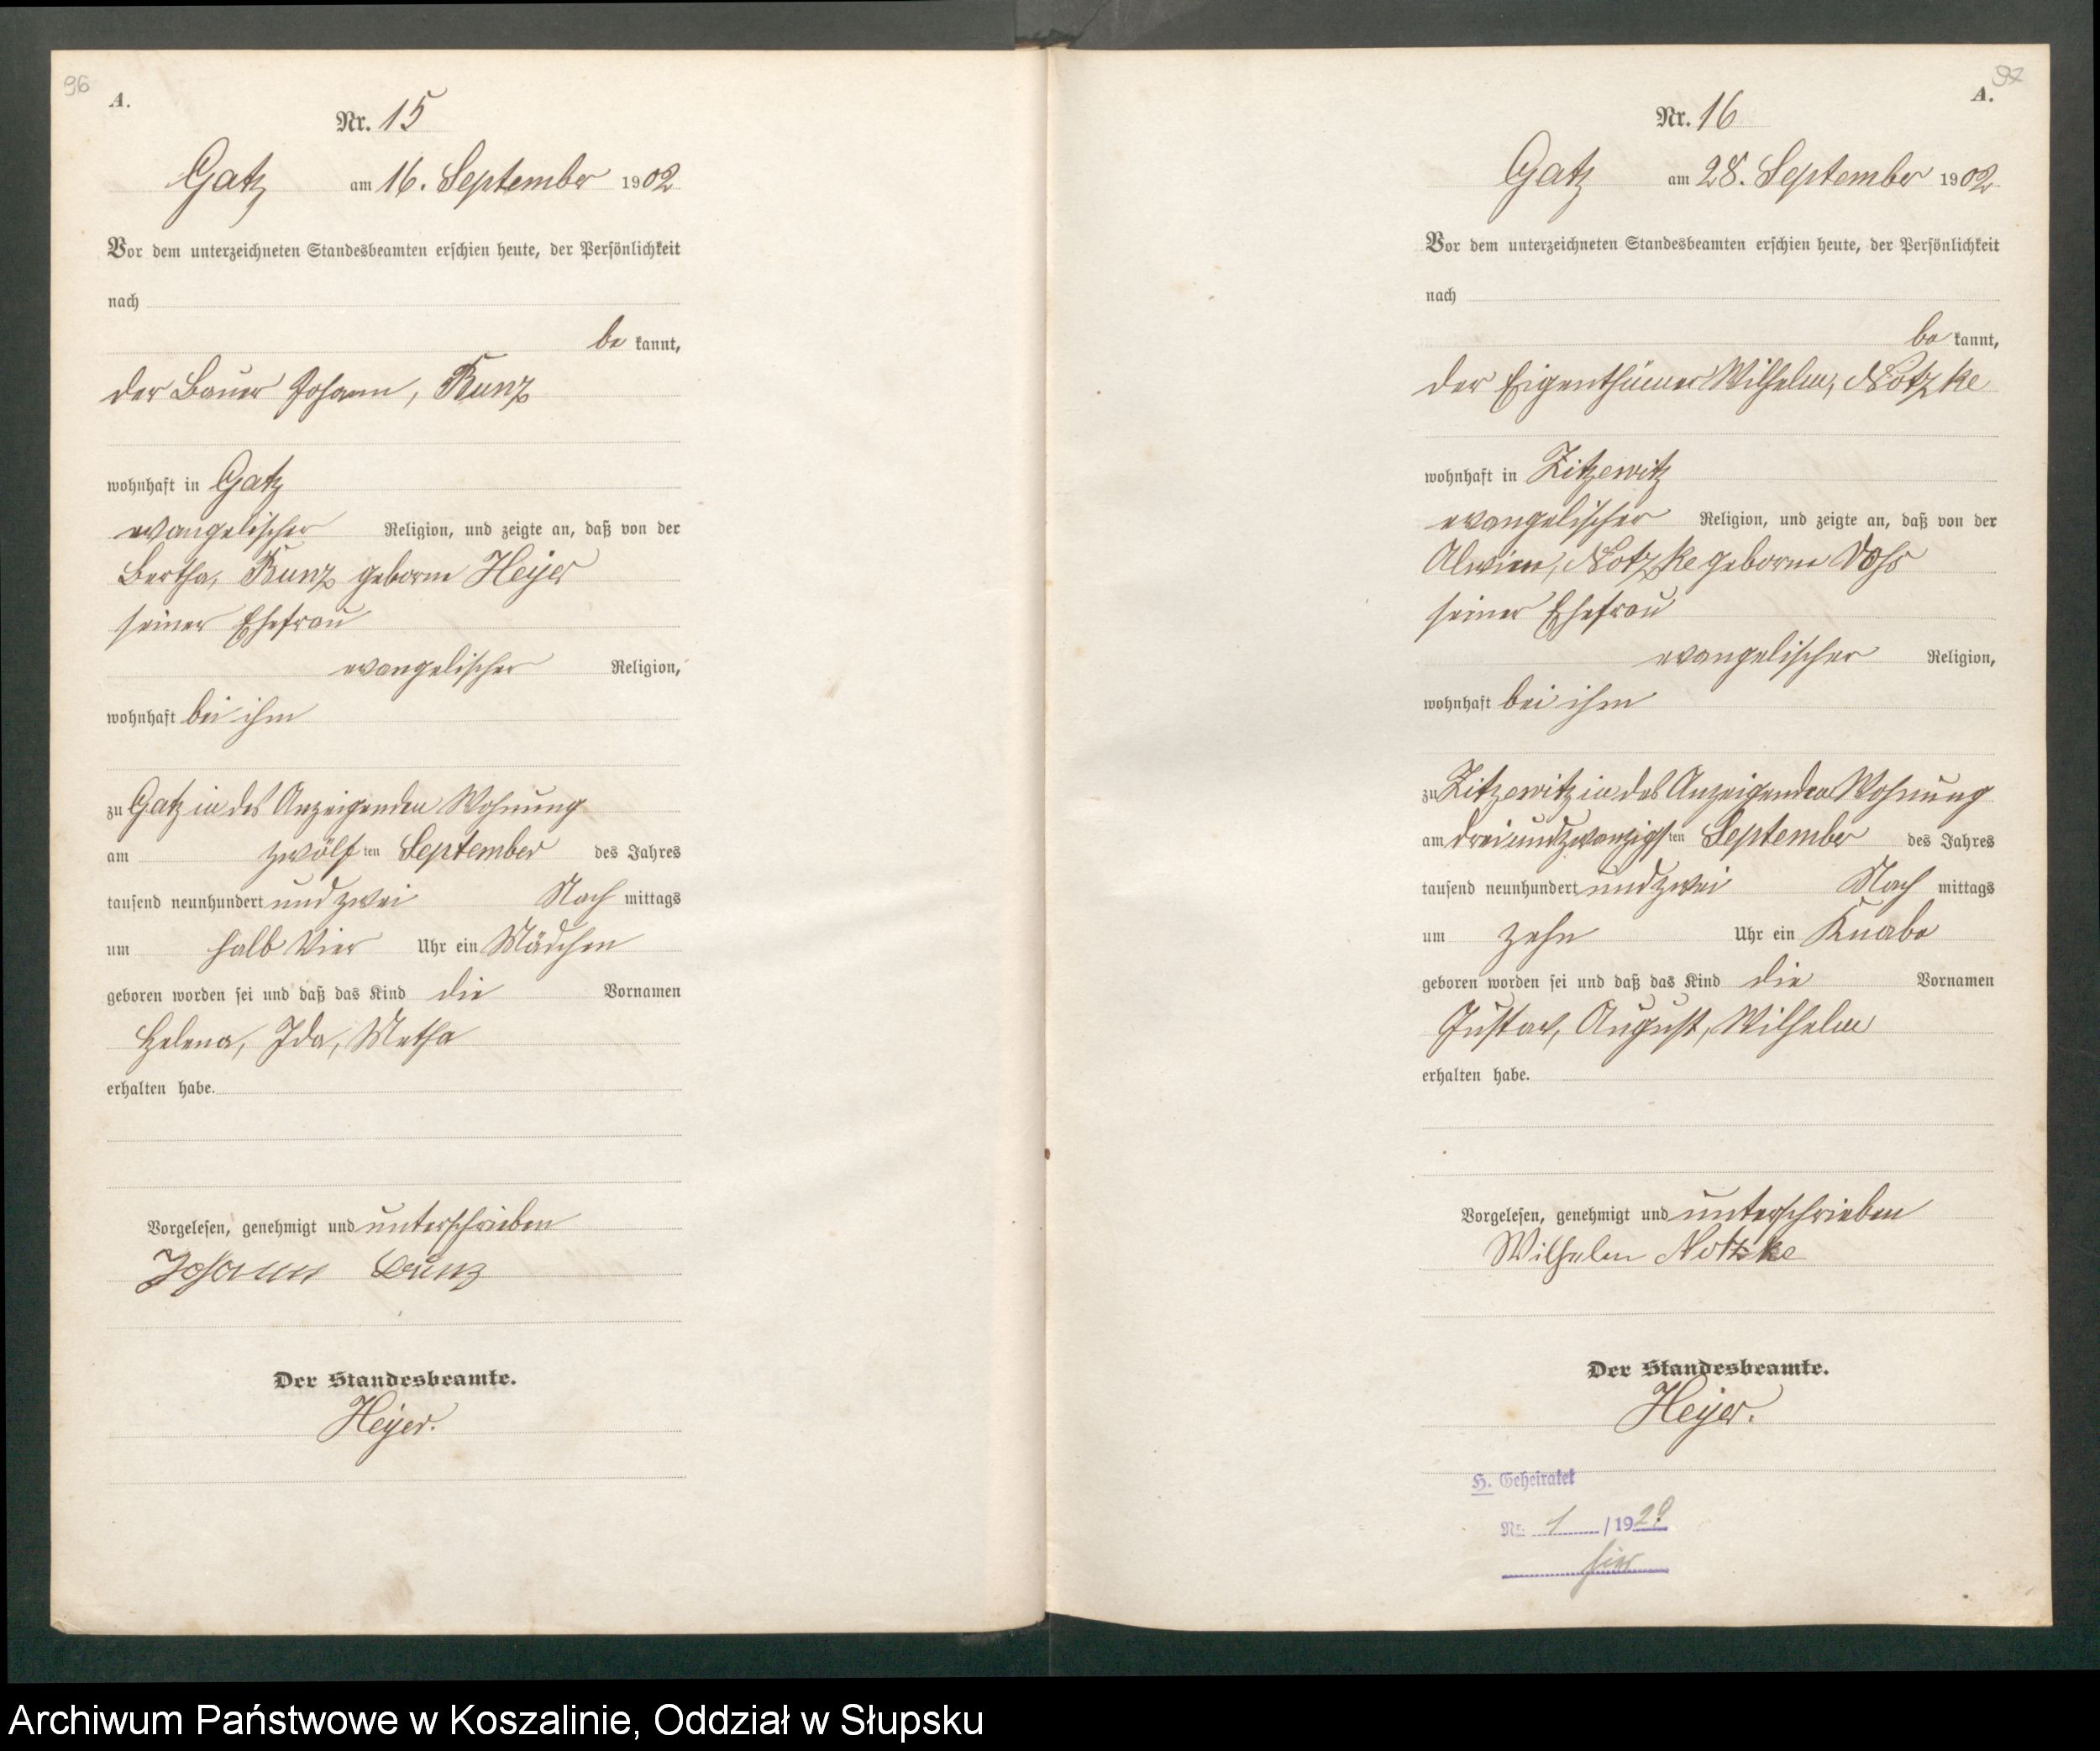 96
A.
Nr. 15
Gatz am 16. September 1902
Vor dem unterzeichneten Standesbeamten erschien heute, der Persönlichkeit
nach
be kannt,
der Bauer Johann, Bunz
wohnhaft in Gatz
evangelischer Religion, und zeigte an, daß von der
Bertha, Bunz geborne Heyer
seiner Ehefrau
evangelischer Religion,
wohnhaft bei ihm
zu Gatz in des Anzeigenden Wohnung
am zwölf ten September des Jahres
tausend neunhundert und zwei Nach mittags
um halb vier Uhr ein Mädchen
geboren worden sei und daß das Kind die Vornamen
Helena, Ida, Metha
erhalten habe.
Vorgelesen, genehmigt und unterschrieben
Johann Bunz
Der Standesbeamte.
Heyer.
97
A.
Nr. 16
Gatz am 28. September 1902
Vor dem unterzeichneten Standesbeamten erschien heute, der Persönlichkeit
nach
be kannt,
der Eigenthümer Wilhelm, Notzke
wohnhaft in Zitzewitz
evangelischer Religion, und zeigte an, daß von der
Alwine, Notzke geborne Vohs
seiner Ehefrau
evangelischer Religion,
wohnhaft bei ihm
zu Zitzewitz in des Anzeigenden Wohnung
am dreiundzwanzigsten September des Jahres
tausend neunhundert und zwei Nach mittags
um zehn Uhr ein Knabe
geboren worden sei und daß das Kind die Vornamen
Gustav, August, Wilhelm
erhalten habe.
Vorgelesen, genehmigt und unterschrieben
Wilhelm Notzke
Der Standesbeamte.
Heyer.
H. Geheiratet
Nr. 1 / 1929
hier
Archiwum Państwowe w Koszalinie, Oddział w Słupsku